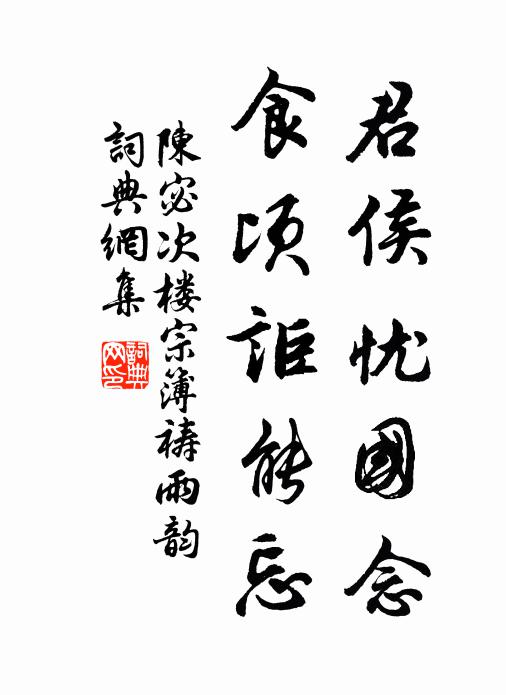 君侯忧國念
食頃詎能忘
陳宓次楼宗簿祷雨韵
詞典網集
詞典
网印